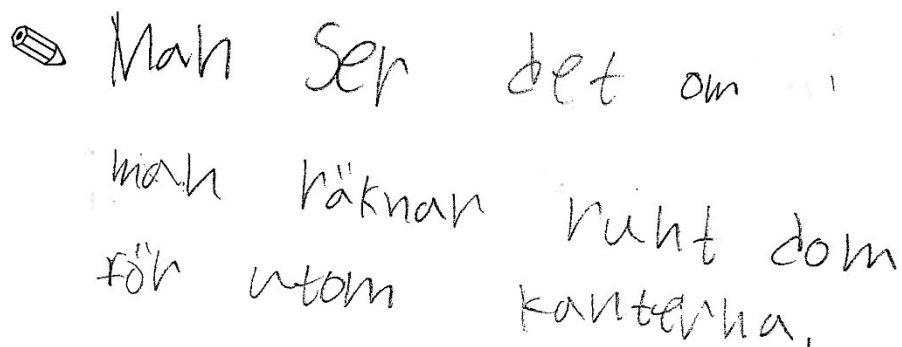 Man Ser det om
man räknar runt dom
för utom kanterna.